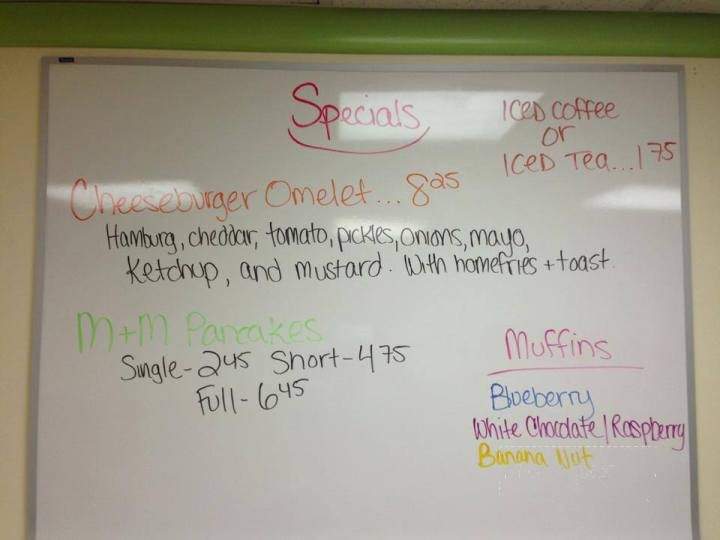 Specials
Iced Coffee
or
Iced Tea...1 75
Cheeseburger Omelet...8 25
Hamburg, cheddar, tomato, pickles, onions, mayo,
Ketchup, and mustard. With homefries + toast.
M+M Pancakes
Single-2 45 Short-4 75
Full-6 45
Muffins
Blueberry
White Chocolate/Raspberry
Banana Nut